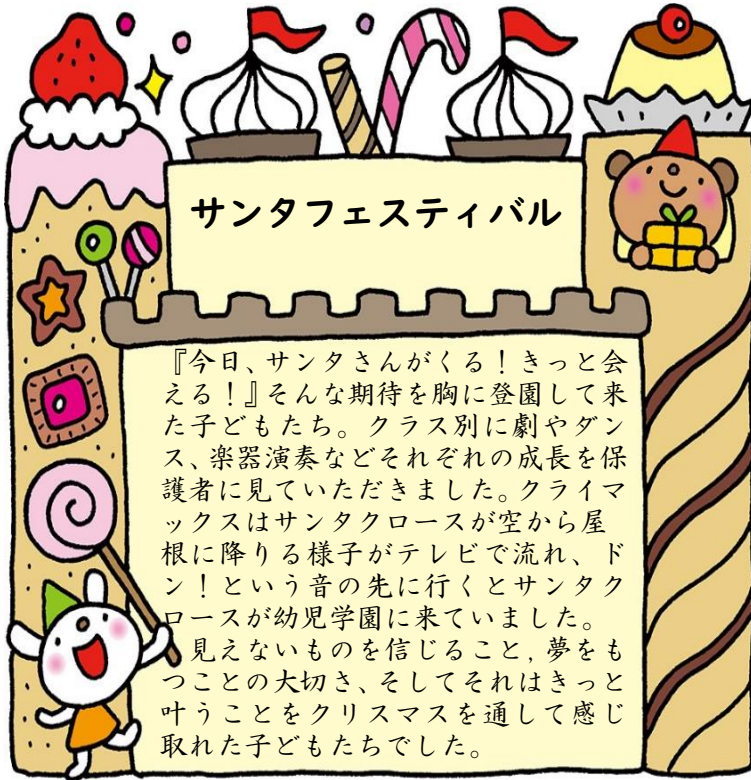 サンタフェスティバル
『今日、サンタさんがくる！きっと会
える！』そんな期待を胸に登園して来
た子どもたち。クラス別に劇やダン
ス、楽器演奏などそれぞれの成長を保
護者に見ていただきました。クライマ
ックスはサンタクロースが空から屋
根に降りる様子がテレビで流れ、ド
ン！という音の先に行くとサンタク
ロースが幼児学園に来ていました。
見えないものを信じること,夢をも
つことの大切さ、そしてそれはきっと
叶うことをクリスマスを通して感じ
取れた子どもたちでした。